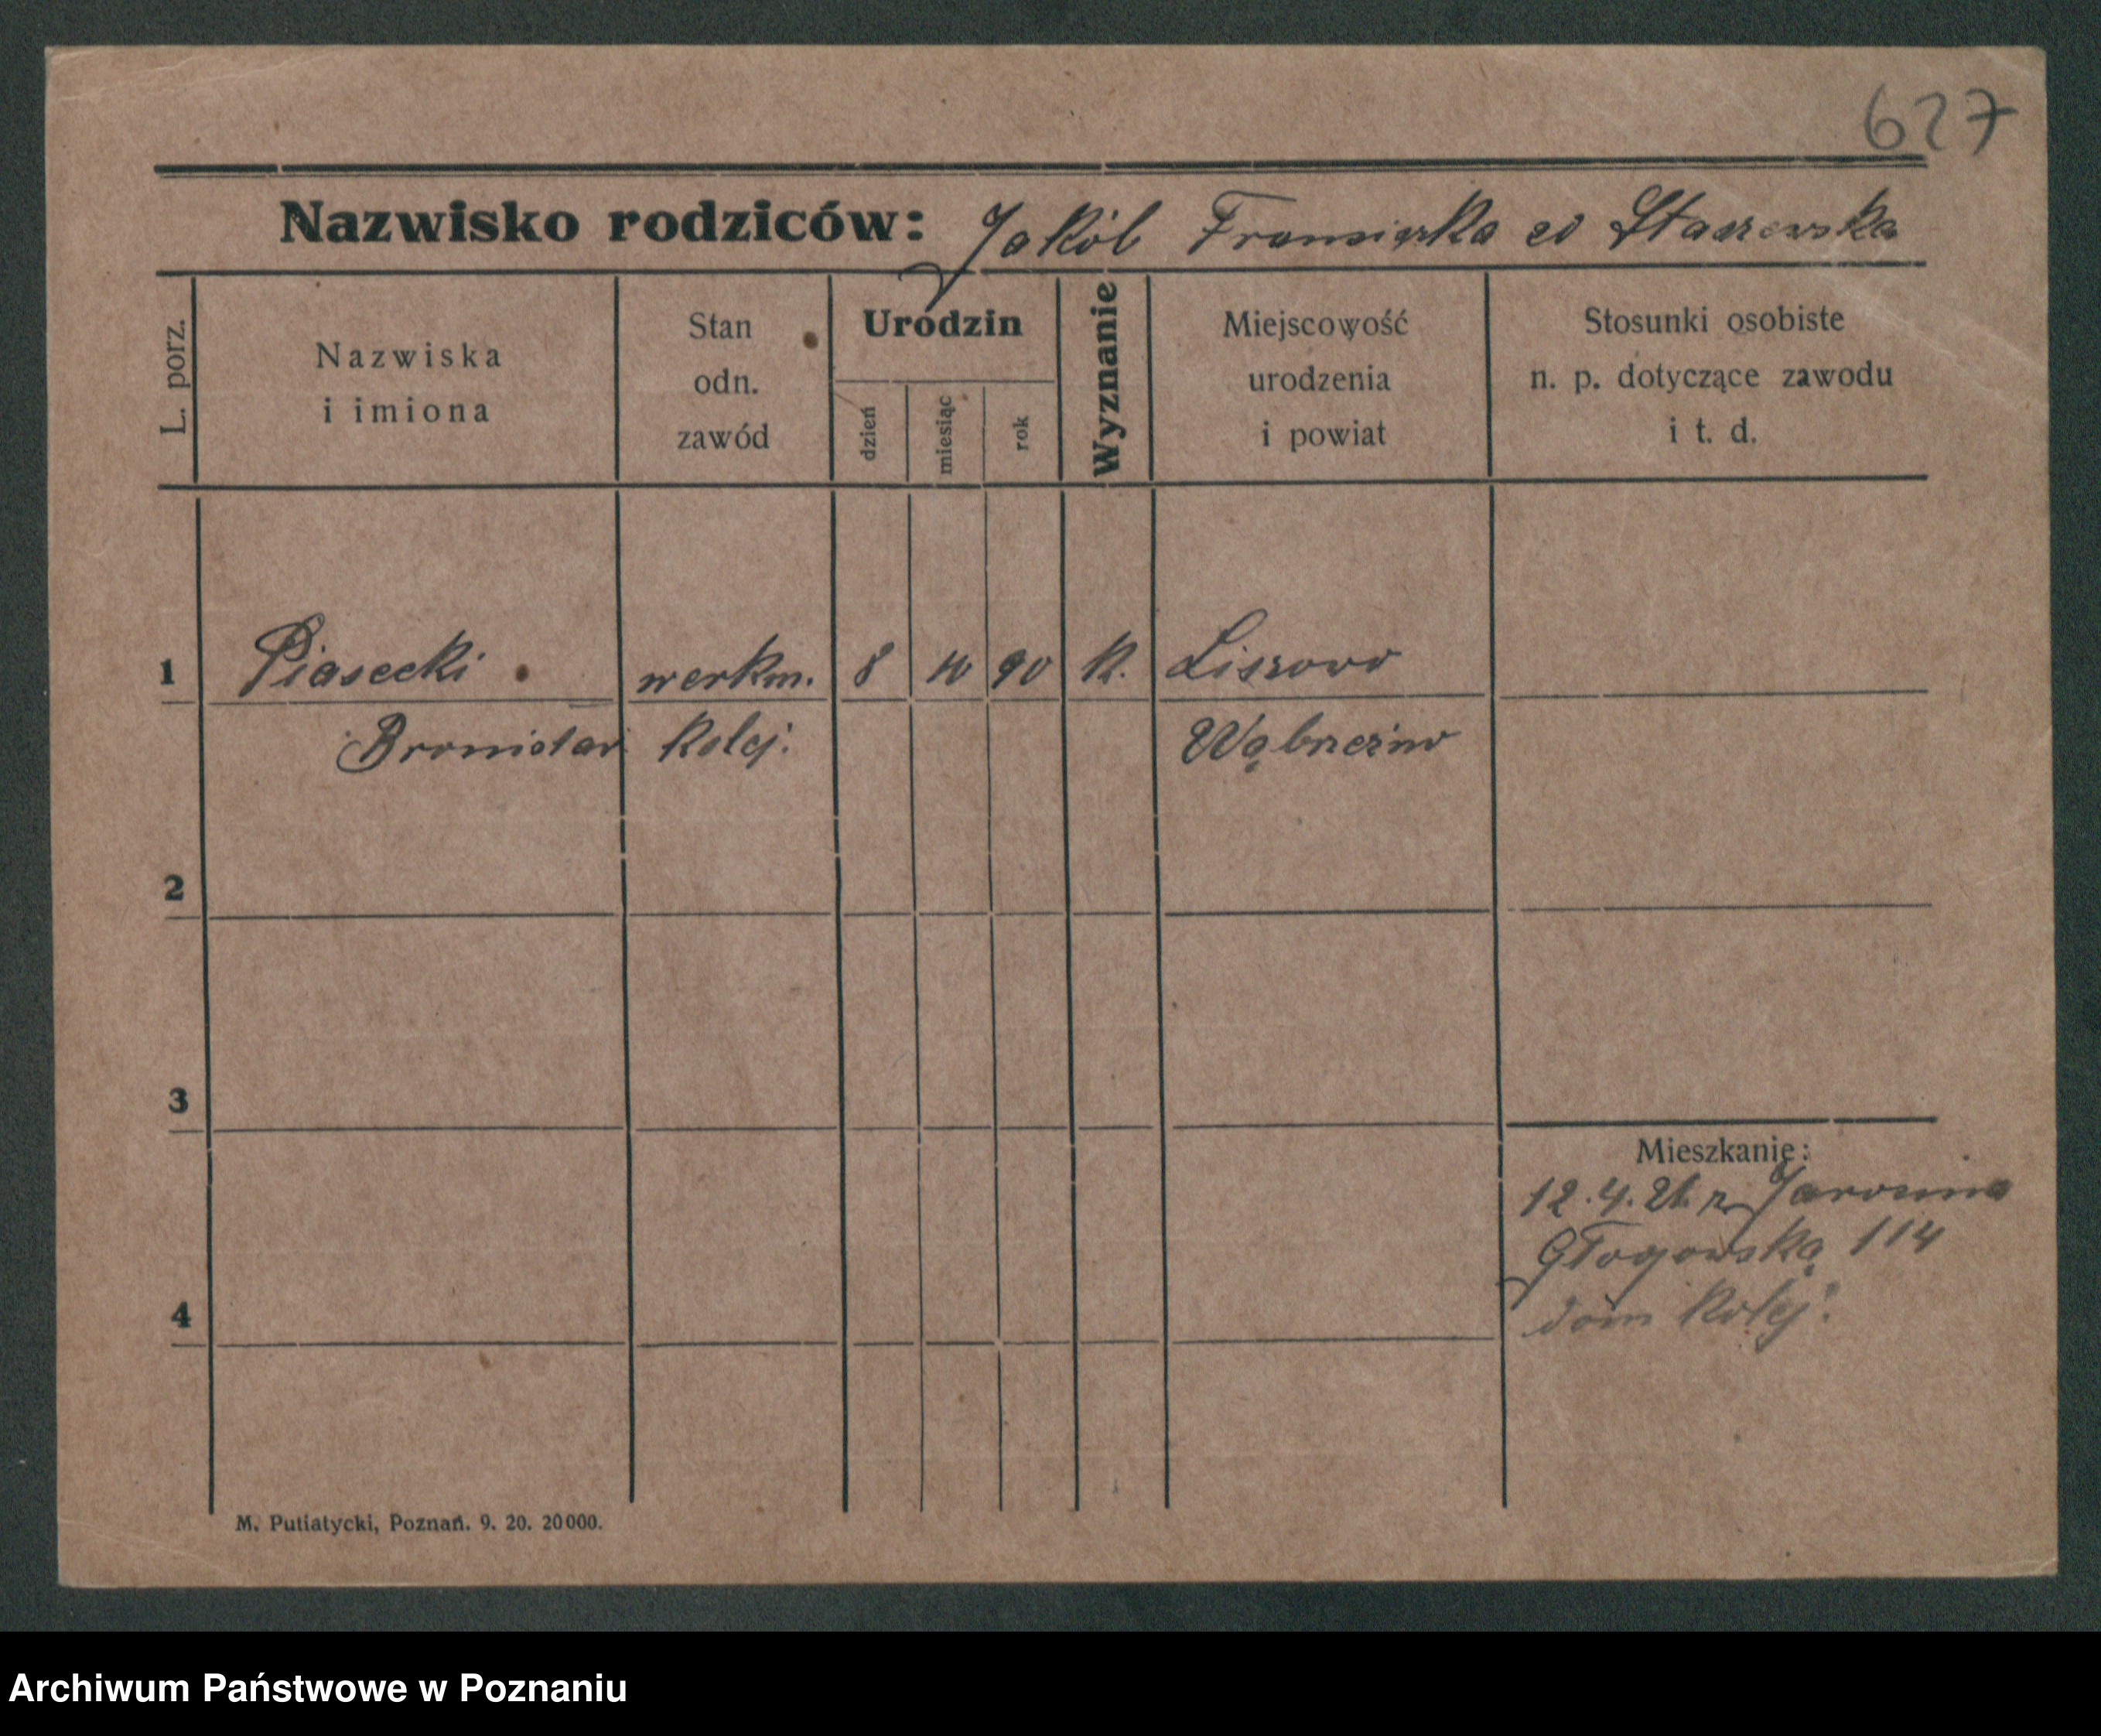 627
Nazwisko rodziców: Jakób Franciszka zd Staszewska
L. porz.
Nazwiska
i imiona
Stan
odn.
zawód
Urodzin
dzień
miesiąc
rok
Wyznanie
Miejscowość
urodzenia
i powiat
Stosunki osobiste
n. p. dotyczące zawodu
i t. d.
1 Piasecki werkm. 8 10 90 K. Liszowo
Bronisław kolej. Wąbrzeźno
2
3
Mieszkanie:
12.4.21. z Jarocina
Głogowska 114
dom kolej.
4
M. Putiatycki, Poznań. 9. 20. 20000.
Archiwum Państwowe w Poznaniu